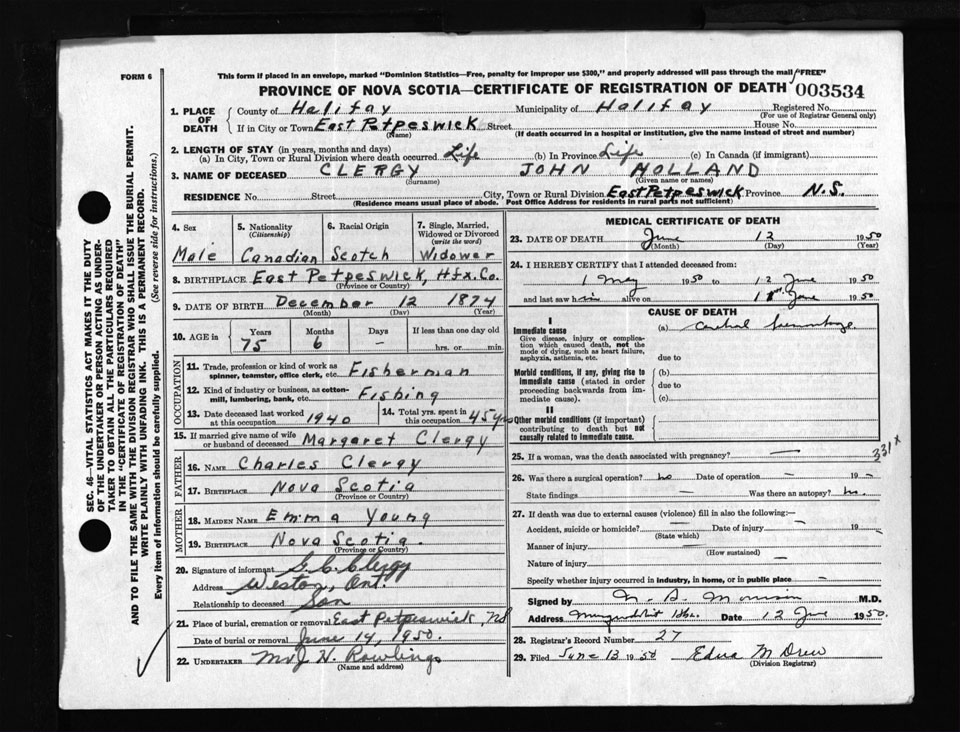 FORM 6
This form if placed in an envelope, marked "Dominion Statistics—Free, penalty for improper use $300," and properly addressed will pass through the mail "FREE"
PROVINCE OF NOVA SCOTIA—CERTIFICATE OF REGISTRATION OF DEATH 003534
SEC. 46—VITAL STATISTICS ACT MAKES IT THE DUTY
OF THE UNDERTAKER OR PERSON ACTING AS UNDER-
TAKER TO OBTAIN ALL THE PARTICULARS REQUIRED
IN THE "CERTIFICATE OF REGISTRATION OF DEATH"
AND TO FILE THE SAME WITH THE DIVISION REGISTRAR WHO SHALL ISSUE THE BURIAL PERMIT.
WRITE PLAINLY WITH UNFADING INK. THIS IS A PERMANENT RECORD.
Every item of information should be carefully supplied. (See reverse side for instructions.)
1. PLACE OF DEATH County of Halifax Municipality of Halifax Registered No.
(For use of Registrar General only)
If in City or Town East Petpeswick Street House No.
(Name) (If death occurred in a hospital or institution, give the name instead of street and number)
2. LENGTH OF STAY (in years, months and days)
(a) In City, Town or Rural Division where death occurred Life (b) In Province Life (c) In Canada (if immigrant)
3. NAME OF DECEASED CLERGY JOHN HOLLAND
(Surname) (Given name or names)
RESIDENCE No. Street City, Town or Rural Division East Petpeswick Province N.S.
(Residence means usual place of abode. Post Office Address for residents in rural parts not sufficient)
4. Sex 5. Nationality (Citizenship) 6. Racial Origin 7. Single, Married, Widowed or Divorced (write the word)
Male Canadian Scotch Widower
8. BIRTHPLACE East Petpeswick, Hfx. Co.
(Province or Country)
9. DATE OF BIRTH December 12 1874
(Month) (Day) (Year)
10. AGE in Years Months Days If less than one day old
75 6 – hrs. or min.
OCCUPATION
11. Trade, profession or kind of work as spinner, teamster, office clerk, etc. Fisherman
12. Kind of industry or business, as cotton-mill, lumbering, bank, etc. Fishing
13. Date deceased last worked at this occupation 1940 14. Total yrs. spent in this occupation 45 yrs
15. If married give name of wife or husband of deceased Margaret Clergy
FATHER
16. NAME Charles Clergy
17. BIRTHPLACE Nova Scotia
(Province or Country)
MOTHER
18. MAIDEN NAME Emma Young
19. BIRTHPLACE Nova Scotia.
(Province or Country)
20. Signature of informant G. C. Clergy
Address Weston, Ont.
Relationship to deceased Son
21. Place of burial, cremation or removal East Petpeswick, NS
Date of burial or removal June 14, 1950.
22. UNDERTAKER Mr J H. Rowlings
(Name and address)
MEDICAL CERTIFICATE OF DEATH
23. DATE OF DEATH June 12 1950
(Month) (Day) (Year)
24. I HEREBY CERTIFY that I attended deceased from:
1 May 1950 to 12 June 1950
and last saw him alive on June 1950
CAUSE OF DEATH
I
Immediate cause (a) Cerebral hemorrhage
Give disease, injury or complica-
tion which caused death, not the
mode of dying, such as heart failure,
asphyxia, asthenia, etc. due to
Morbid conditions, if any, giving rise to (b)
immediate cause (stated in order due to
proceeding backwards from im-
mediate cause). (c)
II
Other morbid conditions (if important)
contributing to death but not
causally related to immediate cause.
331 x
25. If a woman, was the death associated with pregnancy? —
26. Was there a surgical operation? no Date of operation – 19 –
State findings – Was there an autopsy? no.
27. If death was due to external causes (violence) fill in also the following:—
Accident, suicide or homicide? – Date of injury – 19
(State which)
Manner of injury –
(How sustained)
Nature of injury
Specify whether injury occurred in industry, in home, or in public place –
Signed by Morrison M.D.
Address Date 12 June 1950.
28. Registrar's Record Number 27
29. Filed June 13 1950 Edna M Drew
(Division Registrar)